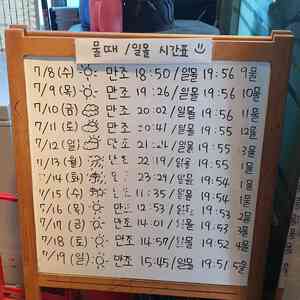 물때 / 일몰 시간표
7/8 (수) 만조 18:50 / 일몰 19:56 9물
7/9 (목) 만조 19:26 / 일몰 19:56 10물
7/10 (금) 만조 20:02 / 일몰 19:56 11물
7/11 (토) 만조 20:41 / 일몰 19:55 12물
7/12 (일) 만조 21: / 일몰 19:55
7/13 (월) 만조 22:19 / 일몰 19:55
7/14 (화) 만조 23:29 / 일몰 19:54 1물
7/15 (수) 만조 11:35 / 일몰 19:54 1물
7/16 (목) 만조 12:53 / 일몰 19:53 2물
7/17 (금) 만조 14:01 / 일몰 19:53 3물
7/18 (토) 만조 14:57 / 일몰 19:52 4물
7/19 (일) 만조 15:45 / 일몰 19:51 5물